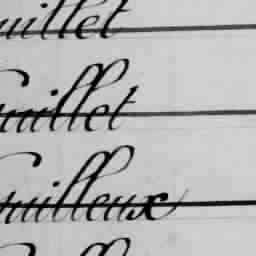 uillet
uillet
uilleux